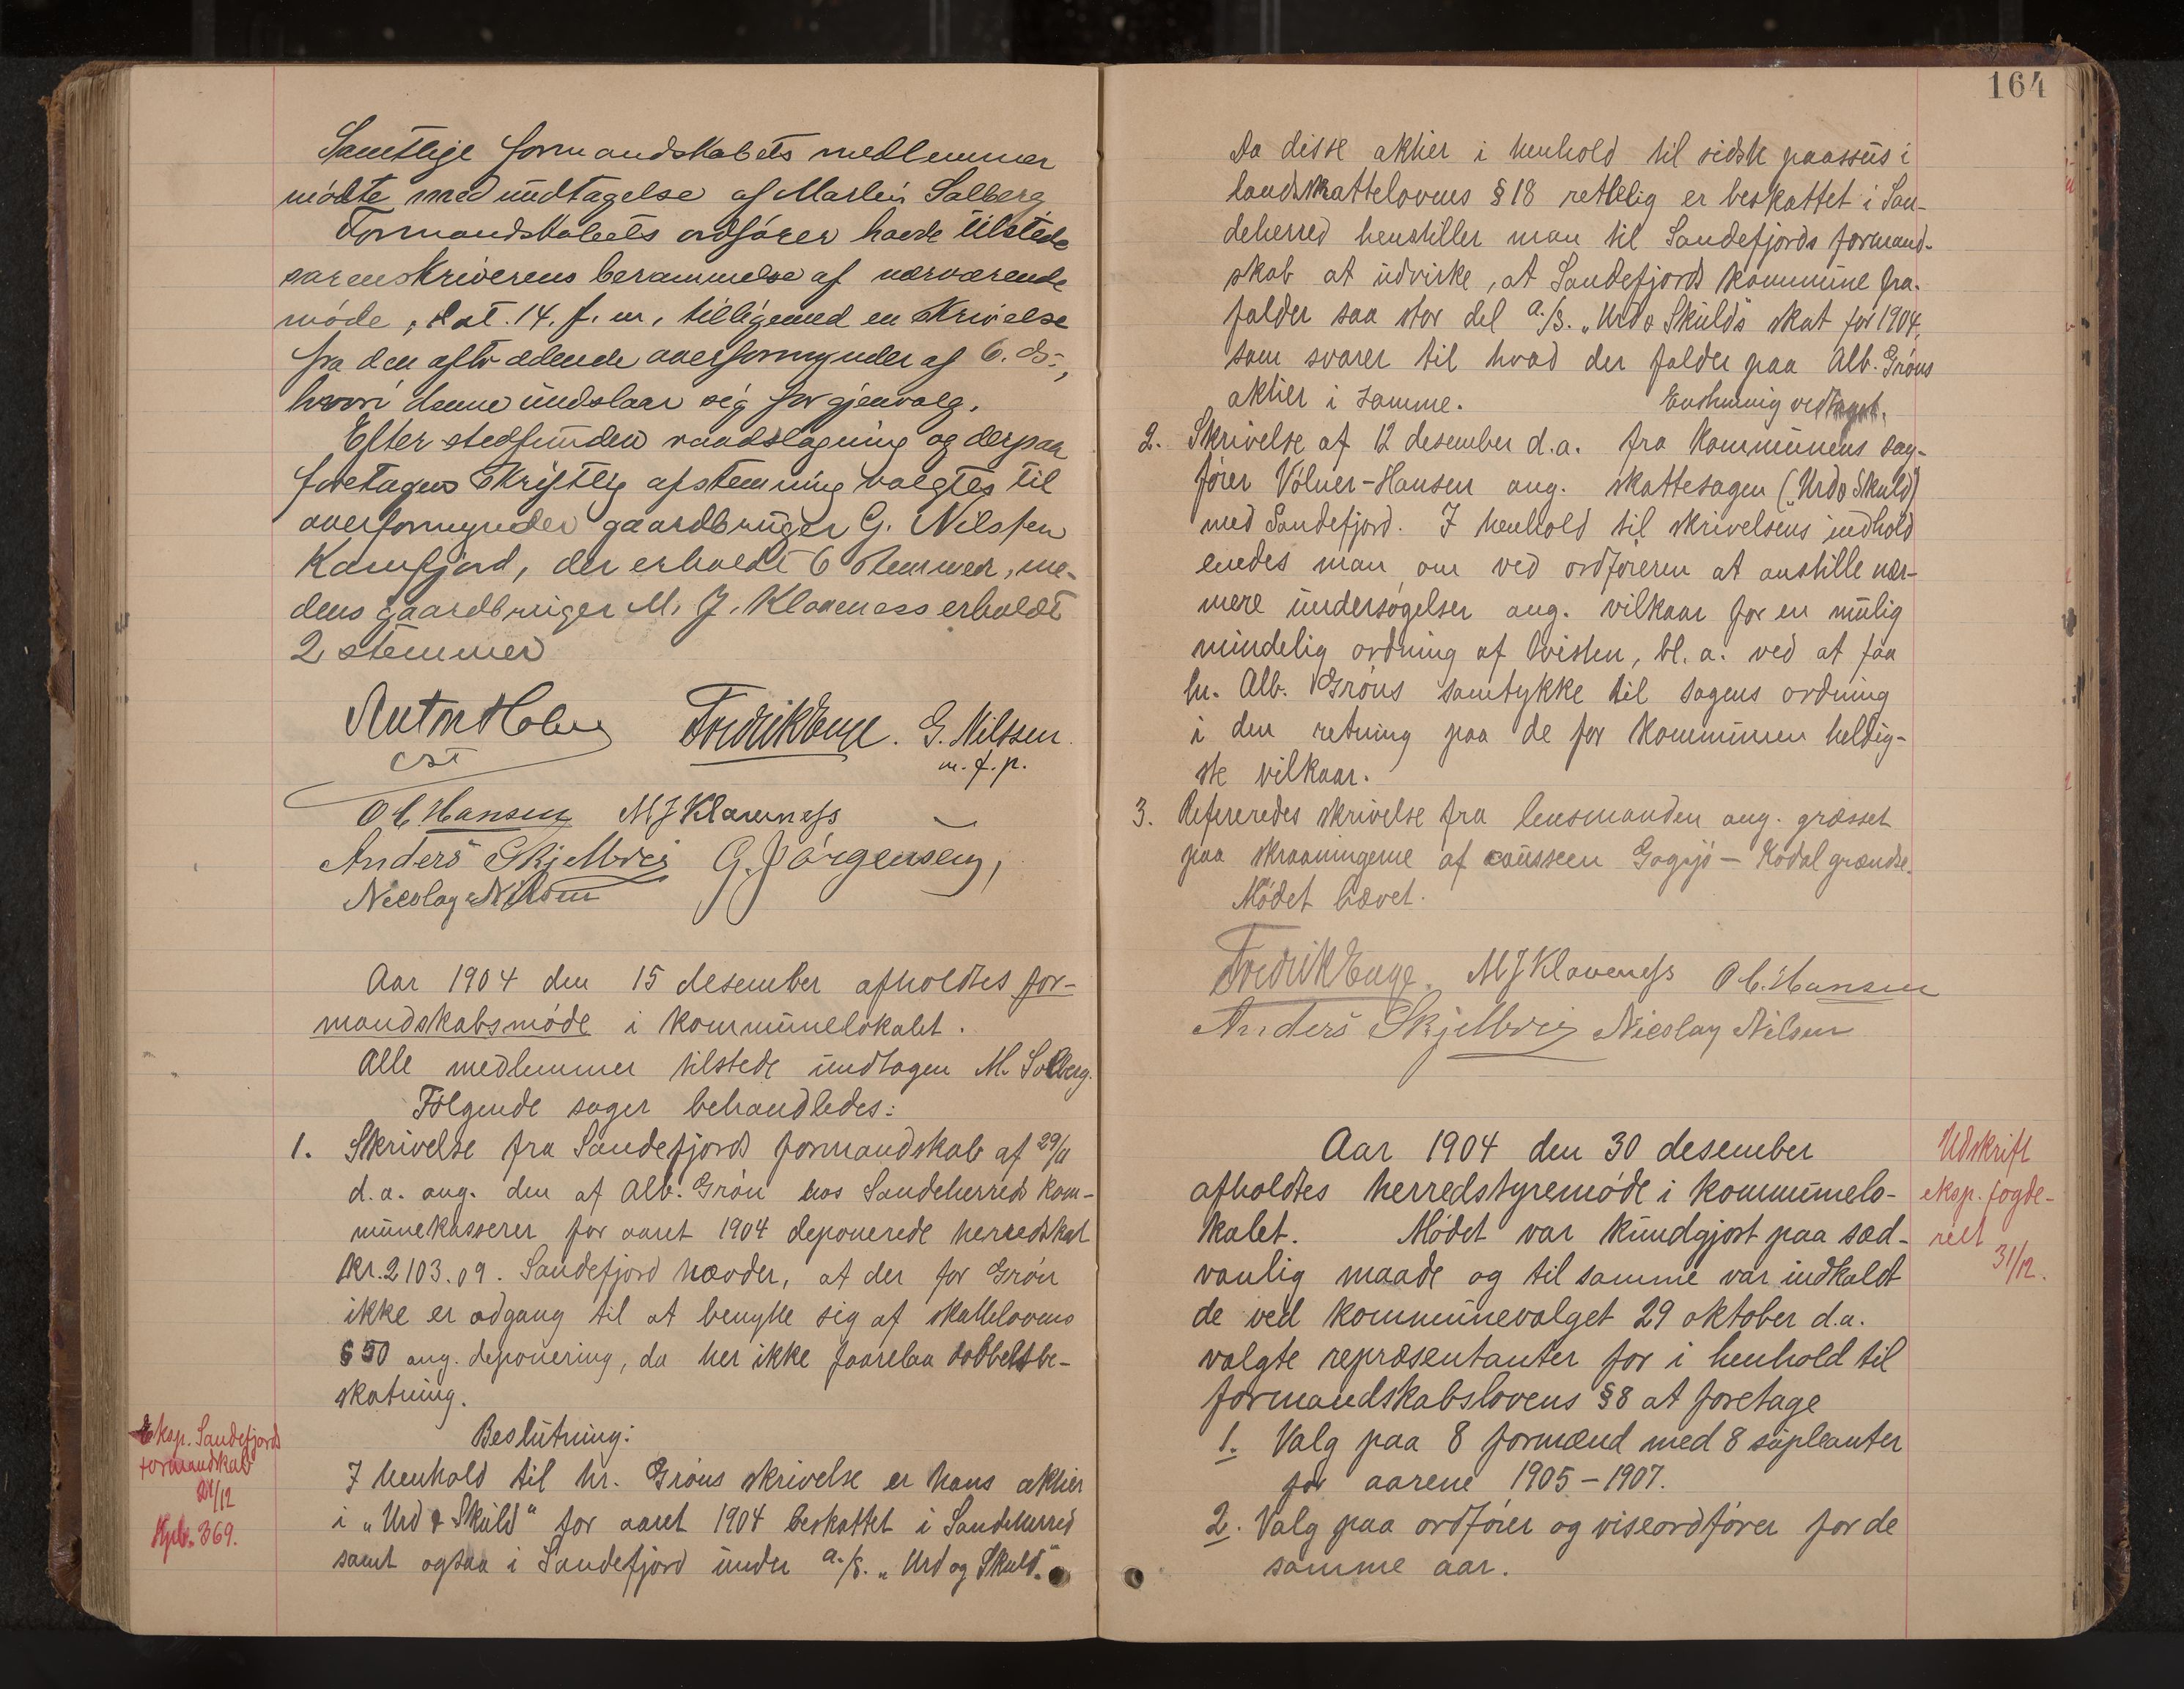 Samtlige formandskabets medlemmer
mødte med undtagelse af Martin Solberg
Formandskabets ordfører havde tilstede
sorenskriverens berammelse af nærværende
møde, dat. 14. f. m., tilligemed en skrivelse
fra den aftrædende overformynder af 6. ds.,
hvori denne undslaar sig for gjenvalg.
Efter stedfunden raadslagning og derpaa
foretagen skriftlig afstemning valgtes til
overformynder gaardbruger G. Nilssen
Kamfjord, der erholdt 6 stemmer, me-
dens gaardbruger M. J. Klaveness erholdt
2 stemmer
Anton Holm Fredrik Enge. G. Nilssen.
cst m. f. p.
O C Hansen M J Klaveness
Anders Skjelbrei G. Jørgensen,
Nicolay Nilsen
Aar 1904 den 15 desember afholdtes for-
mandskabsmøde i kommunelokalet.
Alle medlemmer tilstede undtagen M. Solberg.
Følgende sager behandledes:
1. Skrivelse fra Sandefjords formandskab af 29/11
d.a. ang. den af Alb. Grøn hos Sandeherreds kom-
munekasserer for aaret 1904 deponerede herredskat
Kr. 2103.09. Sandefjord hævder, at der for Grøn
ikke er adgang til at benytte sig af skattelovens
§ 50 ang. deponering, da her ikke foreligger dobbeltbe-
skatning.
Beslutning:
Eksp. Sandefjords
formandskab
21/12
Kpb. 369.
I henhold til hr. Grøns skrivelse er hans aktier
i „Urd & Skuld" for aaret 1904 beskattet i Sandeherred
samt ogsaa i Sandefjord under a./s. „Urd og Skuld."
164
Da disse aktier i henhold til sidste paassus i
landsskattelovens § 18 rettelig er beskattet i San-
deherred henstiller man til Sandefjords formand-
skab at udvirke, at Sandefjords kommune fra-
falder saa stor del a./s. „Urd & Skulds skat for 1904,
som svarer til hvad der falder paa Alb. Grøns
aktier i samme. Enstemmig vedtaget.
2. Skrivelse af 12 desember d.a. fra kommunens sag-
fører Vølner-Hansen ang. skattesagen („Urd & Skuld")
med Sandefjord. I henhold til skrivelsens indhold
enedes man om ved ordføreren at anstille nær-
mere undersøgelser ang. vilkaar for en mulig
mindelig ordning af tvisten, bl. a. ved at faa
hr. Alb. Grøns samtykke til sagens ordning
i den retning paa de for kommunen heldig-
ste vilkaar.
3. Refereredes skrivelse fra lensmanden ang. græsset
paa skraaningerne af causseen Gogsjø – Kodal grændse.
Mødet hævet.
Fredrik Enge. M J Klaveness O C. Hansen
Anders Skjelbrei Nicolay Nilsen
Aar 1904 den 30 desember
afholdtes herredstyremøde i kommunelo-
kalet. Mødet var kundgjort paa sæd-
vanlig maade og til samme var indkaldt
de ved kommunevalget 29 oktober d.a.
valgte repræsentanter for i henhold til
formandskabslovens § 8 at foretage
1. Valg paa 8 formænd med 8 supleanter
for aarene 1905 – 1907.
2. Valg paa ordfører og viseordfører for de
samme aar.
Udskrift
eksp. fogde-
riet
31/12.